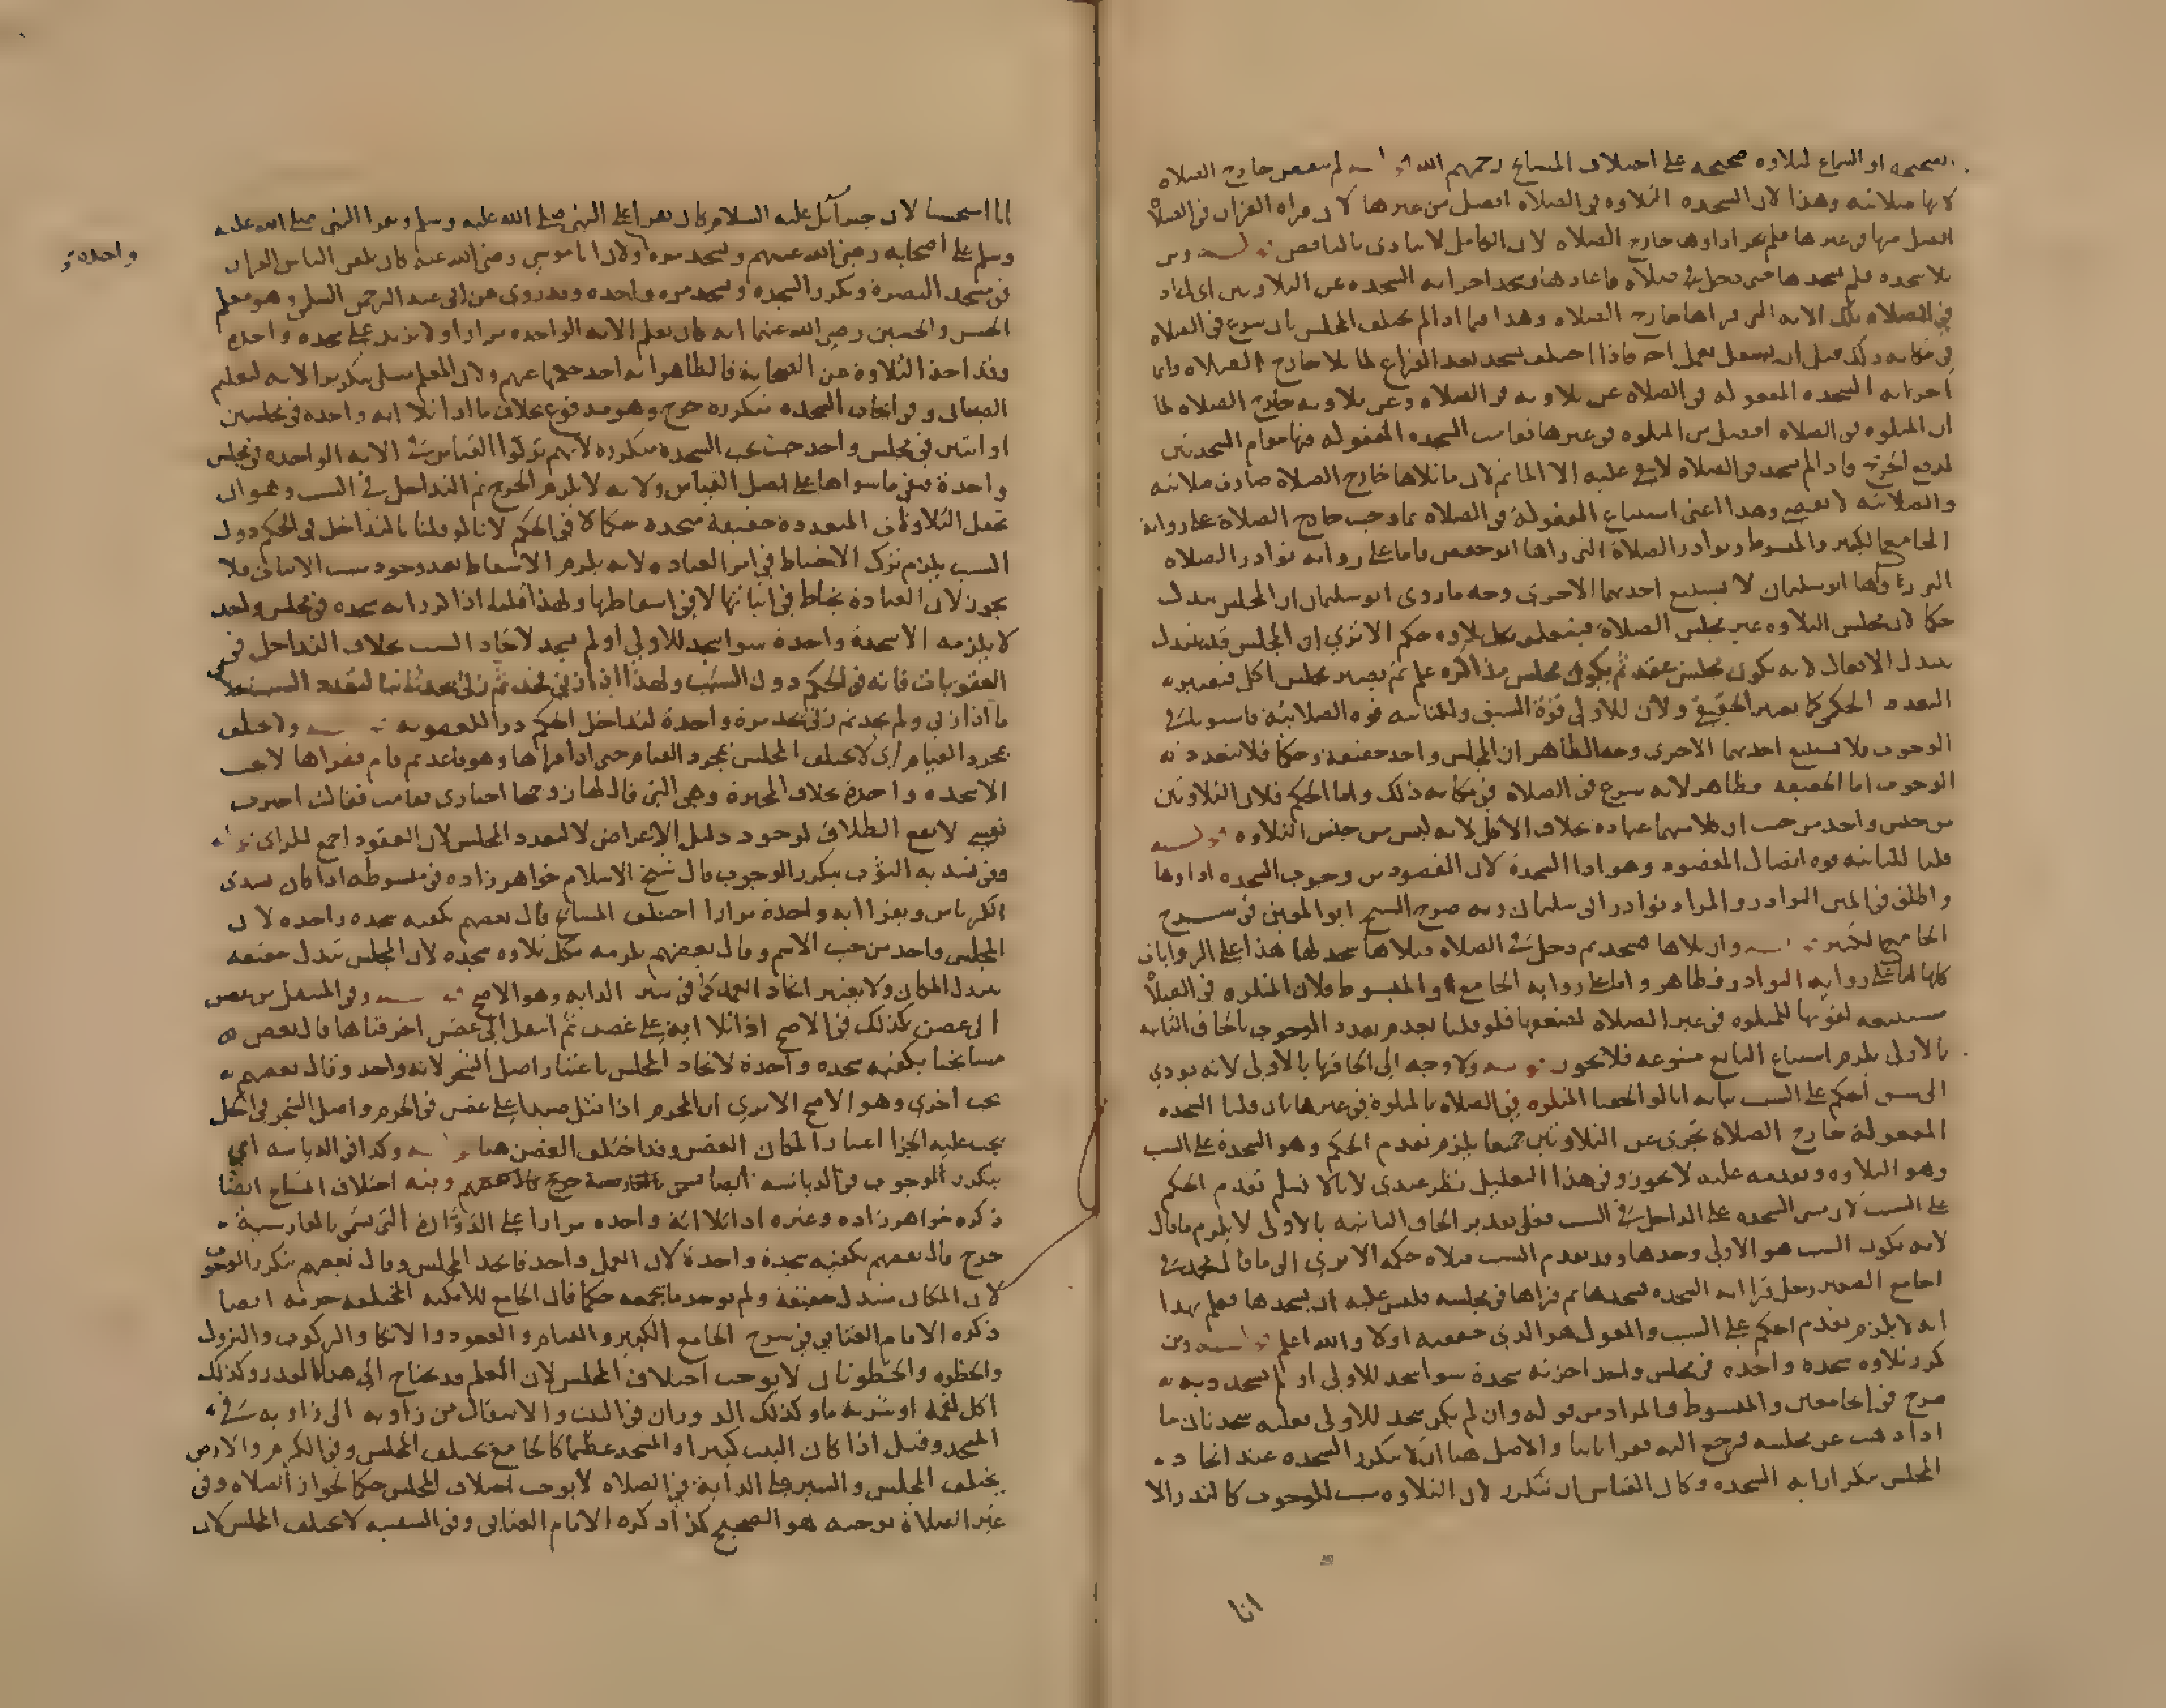 الصحيحه او السماع لتلاوه صحيحه على اختلاف المشايخ رحمهم الله لم تقض خارج الصلاه
لانها صلاتيه وهذا لان السجده المتلاوه في الصلاه افضل من غيرها لان قراه القران في الصلاه
افضل منها في غيرها فلم يجز اداوها خارج الصلاه لان الكامل لا يتادى بالناقص ومن
تلا سجده فلم يسجدها حتى دخل في صلاه فاعادها وسجد اجزاته السجده عن التلاوتين اي اعاد
في الصلاه تلك الايه التي قراها خارج الصلاه وهذا فيما اذا لم يختلف المجلس بان شرع في الصلاه
في مكانه ذلك قبل ان يشتغل بعمل اخر فاذا اختلف يسجد بعد الفراغ لما تلا خارج الصلاه وانما
اجزاته السجده المفعوله في الصلاه عن تلاوته في الصلاه وعن تلاوته خارج الصلاه لما
ان المتلوه في الصلاه افضل من المتلوه في غيرها فقامت السجده المفعوله فيها مقام السجدتين
لدفع الحرج فاذا لم يسجد في الصلاه لا يبقى عليه الا الماثم لان ما تلاها خارج الصلاة صارت صلاتيه
والصلاتيه لا تقضى وهذا اعني استتباع المفعولة في الصلاه ما وجب خارج الصلاة على رواية
الجامع الكبير والمبسوط ونوادر الصلاة التي رواها ابو حفص واما على روايه نوادر الصلاه
التي رواها ابو سليمان لا يستتبع احديهما الاخرى وجه ما روى ابو سليمان ان المجلس يتبدل
حكما لان مجلس التلاوه غير مجلس الصلاة فيتعلق بكل تلاوه حكم الا ترى ان المجلس قد يتبدل
بتبدل الافعال لانه يكون مجلس عقد ثم يكون مجلس مذاكره علم ثم يصير مجلس اكل فيعتبر
التعدد الحكمي كما يعتبر الحقيقي ولان للاولى قوة السبق وللثانيه قوه الصلاتيه فاستويا في
الوجوب فلا يستتبع احديهما الاخرى وجه الظاهر ان المجلس واحد حقيقة وحكما فلا يتعدد
الوجوب اما الحقيقه فظاهر لانه شرع في الصلاة في مكانه ذلك واما الحكم فلان التلاوتين
من جنس واحد من حيث ان كلا منهما عباده بخلاف الاكل لانه ليس من جنس التلاوه
قلنا للثانيه قوه اتصال المقصود وهو ادا السجدة لان المقصود من وجوب السجده اداوها
واطلق في المتن النوادر والمراد نوادر ابي سليمان وبه صرح الشيخ ابو المعين في شرح
الجامع الكبير وان تلاها فسجد ثم دخل في الصلاه فتلاها سجد لها هذا على الروايات
كلها اما على روايه النوادر فظاهر واما على روايه الجامع والمبسوط فلان المتلوه في الصلاة
مستتبعه لقوتها للمتلوه في غير الصلاه لضعفها فلو قلنا بعدم تعدد الوجوب بالحاق الثانيه
بالاولى يلزم استتباع التابع متبوعه فلا يجوز ولا وجه الى الحاقها بالاولى لانه يودي
الى سبق الحكم على السبب بيانه انا لو الحقنا المتلوه في الصلاه بالمتلوة في غيرها بان قلنا السجده
المفعولة خارج الصلاة تجزي عن التلاوتين جميعا يلزم تقدم الحكم وهو السجدة على السبب
وهو التلاوه وتقدمه عليه لا يجوز وفي هذا التعليل نظر عندي لانا لا نسلم تقدم الحكم
على السبب لان مبنى السجده على التداخل في السبب فعلى تقدير الحاق الثانيه بالاولى لا يلزم ما قال
لانه يكون السبب هو الاولى وحدها وقد تقدم السبب فتلاه حكمه الا ترى الى ما قال محمد في
الجامع الصغير رجل قرا ايه السجده فسجدها ثم قراها في مجلسه فليس عليه ان يسجدها فعلم بهذا
انه لا يلزم تقدم الحكم على السبب والمعول هو الذي حققته اولا والله اعلم ومن
كرر تلاوه سجده واحده في مجلس واحد اجزته سجدة سوا سجد للاولى او لم يسجد وبه
صرح في الجامعين والمبسوط والمراد من قوله وان لم يكن سجد للاولى فعليه سجدتان ما
اذا ذهب عن مجلسه فرجع اليه فقرا ثانيا والاصل هنا ان لا تتكرر السجده عند اتحاد
المجلس بتكرار ايه السجده وكان القياس ان تتكرر لان التلاوه سبب للوجوب كالنذر الا
انا
انا استحسنا لان جبرائيل عليه السلام كان يقرا على النبي صلى الله عليه وسلم ويقرا النبي صلى الله عليه
وسلم على اصحابه رضي الله عنهم ويسجد مرة ولان ابا موسى رضي الله عنه كان يلقن الناس القران
واحدة
في مسجد البصرة ويكرر السجده ويسجد مره واحده وقد روي عن ابي عبد الرحمن السلمي وهو معلم
الحسن والحسين رضي الله عنهما انه كان يعلم الايه الواحده مرارا ولا يزيد على سجده واحده
وقد اخذ التلاوة عن الصحابة فالظاهر انه اخذ حكمها عنهم ولان المعلم مبتلى بتكرير الايه لتعليم
الصبيان وفي ايجاب السجده متكررة حرج وهو مدفوع بخلاف ما اذا تلا ايه واحده في مجلسين
او ايتين في مجلس واحد حيث تجب السجدة متكررة لانهم تركوا القياس في الايه الواحده في مجلس
واحدة فبقي ما سواها على اصل القياس ولانه لا يلزم الحرج ثم التداخل في السبب وهو ان
تجعل التلاوتان المتعددة حقيقة متحدة حكما لا في الحكم لانا لو قلنا بالتداخل في الحكم دون
السبب يلزم ترك الاحتياط في امر العباده لانه يلزم الاسقاط بعد وجود سبب الاثبات فلا
يجوز لان العبادة يحتاط في اثباتها لا في اسقاطها ولهذا قلنا اذا كرر ايه سجده في مجلس واحد
لا يلزمه الا سجدة واحدة سوا سجد للاولى او لم يسجد لاتحاد السبب بخلاف التداخل في
العقوبات فانه في الحكم دون السبب ولهذا اذا زنى فحد ثم زنى يحد ثانيا لتعدد السبب بخلاف
ما اذا زنى ولم يحد ثم زنى يحد مرة واحدة لتداخل الحكم درا للعقوبه ولا يختلف
بمجرد القيام اي لا يختلف المجلس بمجرد القيام حتى اذا قراها وهو قاعد ثم قام فقراها لا تجب
الا سجده واحدة بخلاف المخيرة وهي التي قال لها زوجها اختاري فقامت فقالت اخترت
نفسي لا يقع الطلاق لوجود دليل الاعراض لا لتعدد المجلس لان القعود اجمع للراي
وفي تسديه الثوب يتكرر الوجوب قال شيخ الاسلام خواهر زاده في مبسوطه اذا كان يسدي
الكرباس ويقرا ايه واحدة مرارا اختلف المشايخ قال بعضهم يكفيه سجده واحده لان
المجلس واحد من حيث الاسم وقال بعضهم يلزمه بكل تلاوه سجده لان المجلس تبدل حقيقه
بتبدل المكان ولا يعتبر اتحاد العمل كما في سير الدابه وهو الاصح وفي المتنقل من غصن
الى غصن كذلك في الاصح اذا تلا اية على غصن ثم انتقل الى غصن اخر فتلاها قال بعض
مشايخنا يكفيه سجده واحدة لاتحاد المجلس باعتبار اصل الشجر لانه واحد وقال بعضهم
تجب اخرى وهو الاصح الا ترى ان المحرم اذا قتل صيدا على غصن في الحرم واصل الشجر في الحل
يجب عليه الجزا اعتبارا لمكان الغصن وقد اختلف الغصن هنا وكذا في الدياسه اي
يتكرر الوجوب في الدياسه ايضا وفيه اختلاف المشايخ ايضا
ذكره خواهر زاده وغيره اذا تلا اية واحده مرارا على الدوارة التي تسمى بالفارسية
خرج قال بعضهم يكفيه سجدة واحدة لان العمل واحد فاتحد المجلس وقال بعضهم يتكرر الوجوب
لان المكان متبدل حقيقة ولم يوجد ما يجمعه حكما قال الجامع للامكنه المختلفه حرمه الصلاه
ذكره الامام العتابي في شرح الجامع الكبير والقيام والقعود والاتكا والركوب والنزول
والخطوة والخطوتان لا يوجب اختلاف المجلس لان المعلم قد يحتاج الى هذا القدر وكذلك
اكل لقمة او شربة ماء وكذلك الدوران في البيت والانتقال من زاويه الى زاويه في
المسجد وقيل اذا كان البيت كبيرا او المسجد عظيما كالجامع يختلف المجلس وفي الكرم والارض
يختلف المجلس والسير على الدابة في الصلاه لا يوجب اختلاف المجلس حكما لجواز الصلاه وفي
غير الصلاة يوجبه هو الصحيح كذا ذكره الامام العتابي وفي السفينه لا يختلف المجلس لان